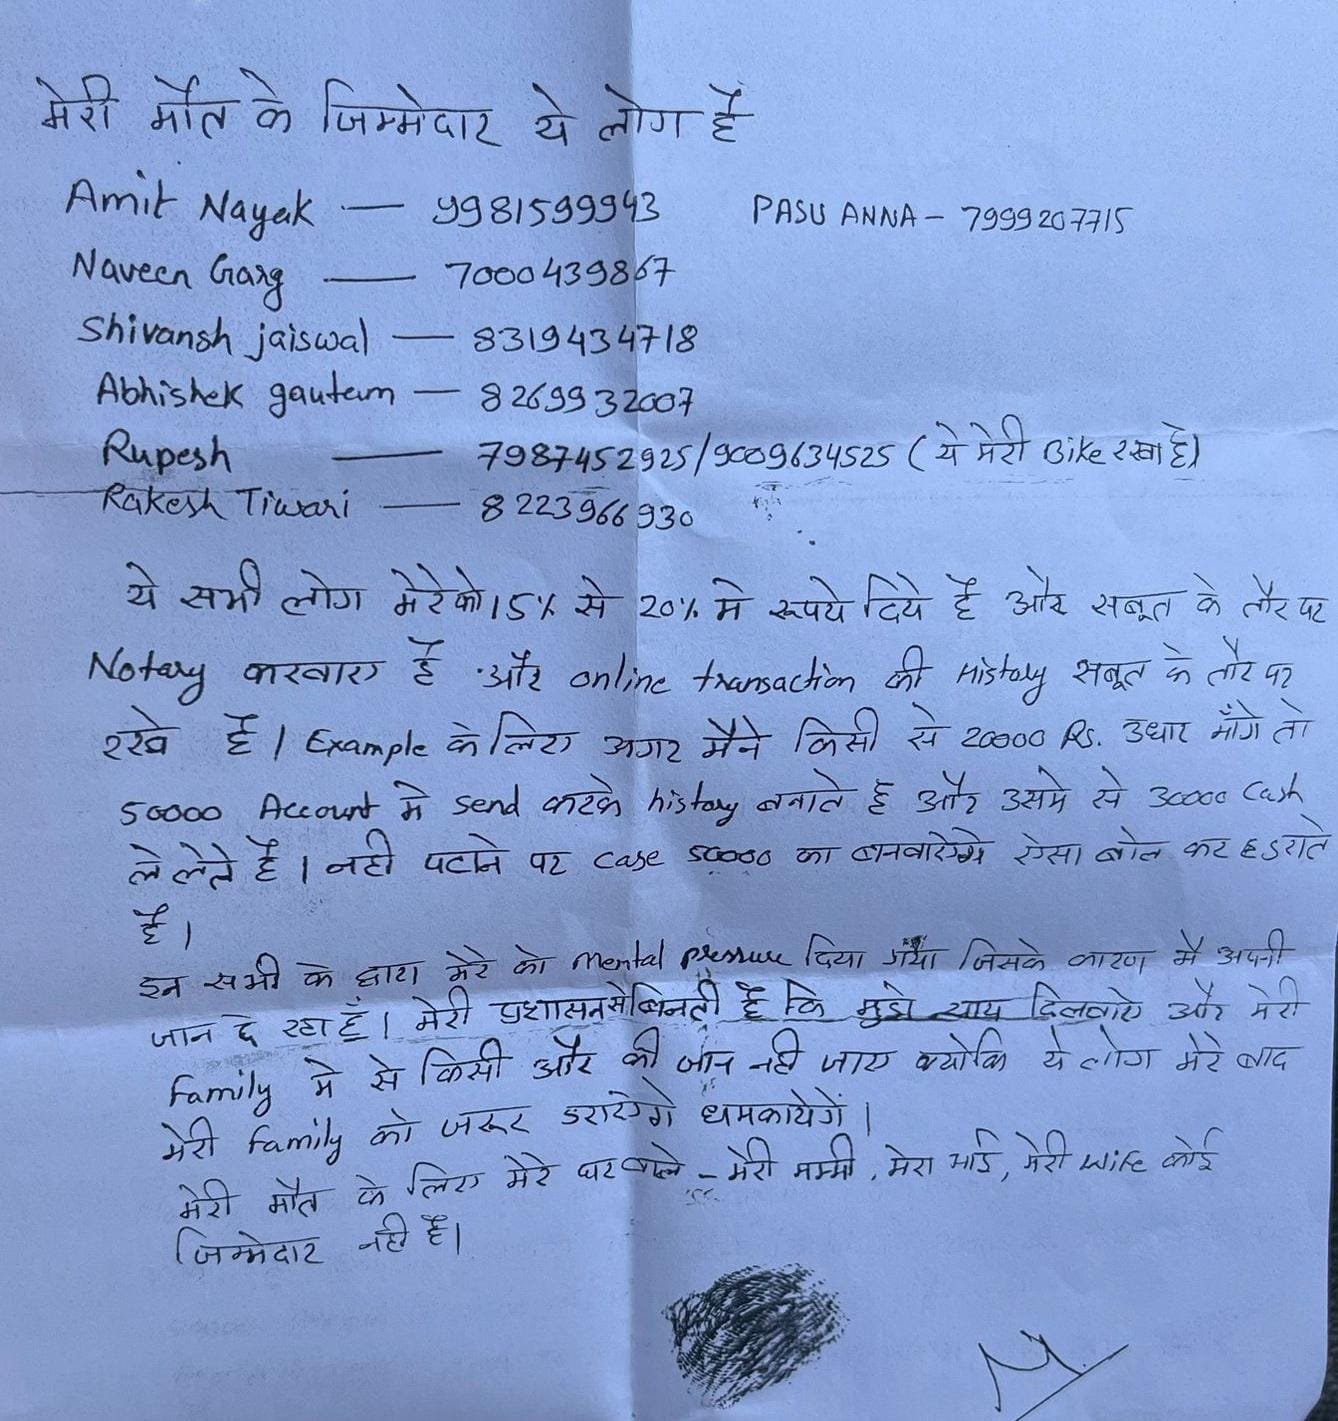 मेरी मौत के जिम्मेदार ये लोग है
Amit Nayak — 9981599943 PASU ANNA - 7999207715
Naveen Garg — 7000439867
Shivansh jaiswal — 8319434718
Abhishek gautam — 8269932007
Rupesh — 7987452925/9009634525 (ये मेरी Bike रखा है)
Rakesh Tiwari — 8223966930
ये सभी लोग मेरेको 15% से 20% मे रूपये दिये है और सबूत के तौर पर
Notary करवाए है और online transaction की History सबूत के तौर पर
रखे है। Example के लिए अगर मैने किसी से 20000 Rs. उधार माँगे तो
50000 Account मे send करके history बनाते है और उसमे से 30000 Cash
ले लेते है। नही पटाने पर case 50000 का बानवाऐगे ऐसा बोल कर डराते
है।
इन सभी के द्वारा मेरे को mental pressure दिया गया जिसके कारण मै अपनी
जान दे रहा हूँ। मेरी प्रशासन से बिनती है कि मुझे न्याय दिलवाऐ और मेरी
family मे से किसी और की जान नही जाए क्योकि ये लोग मेरे बाद
मेरी family को जरूर डराऐगे धमकायेगें।
मेरी मौत के लिए मेरे घर वाले - मेरी मम्मी, मेरा भाई, मेरी wife कोई
जिम्मेदार नही है।